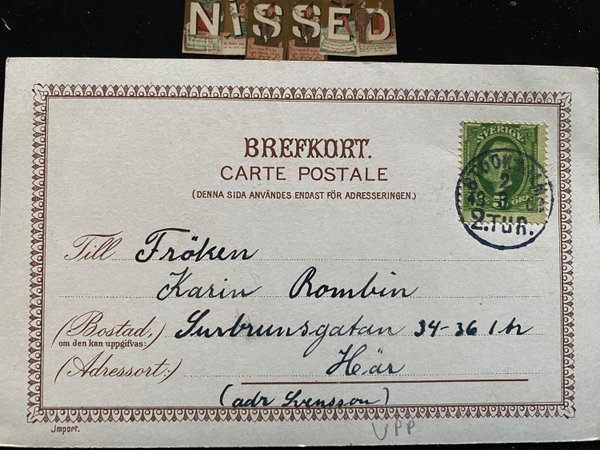 NISSED
BREFKORT.
CARTE POSTALE
(DENNA SIDA ANVÄNDES ENDAST FÖR ADRESSERINGEN.)
SVERIGE
2
2. TUR.
Till Fröken
Karin Rombin
(Bostad, Surbrunsgatan 34-36 1 tr
om den kan uppgifvas:)
(Adressort:) Här
(adr Svensson)
Import.
UPP